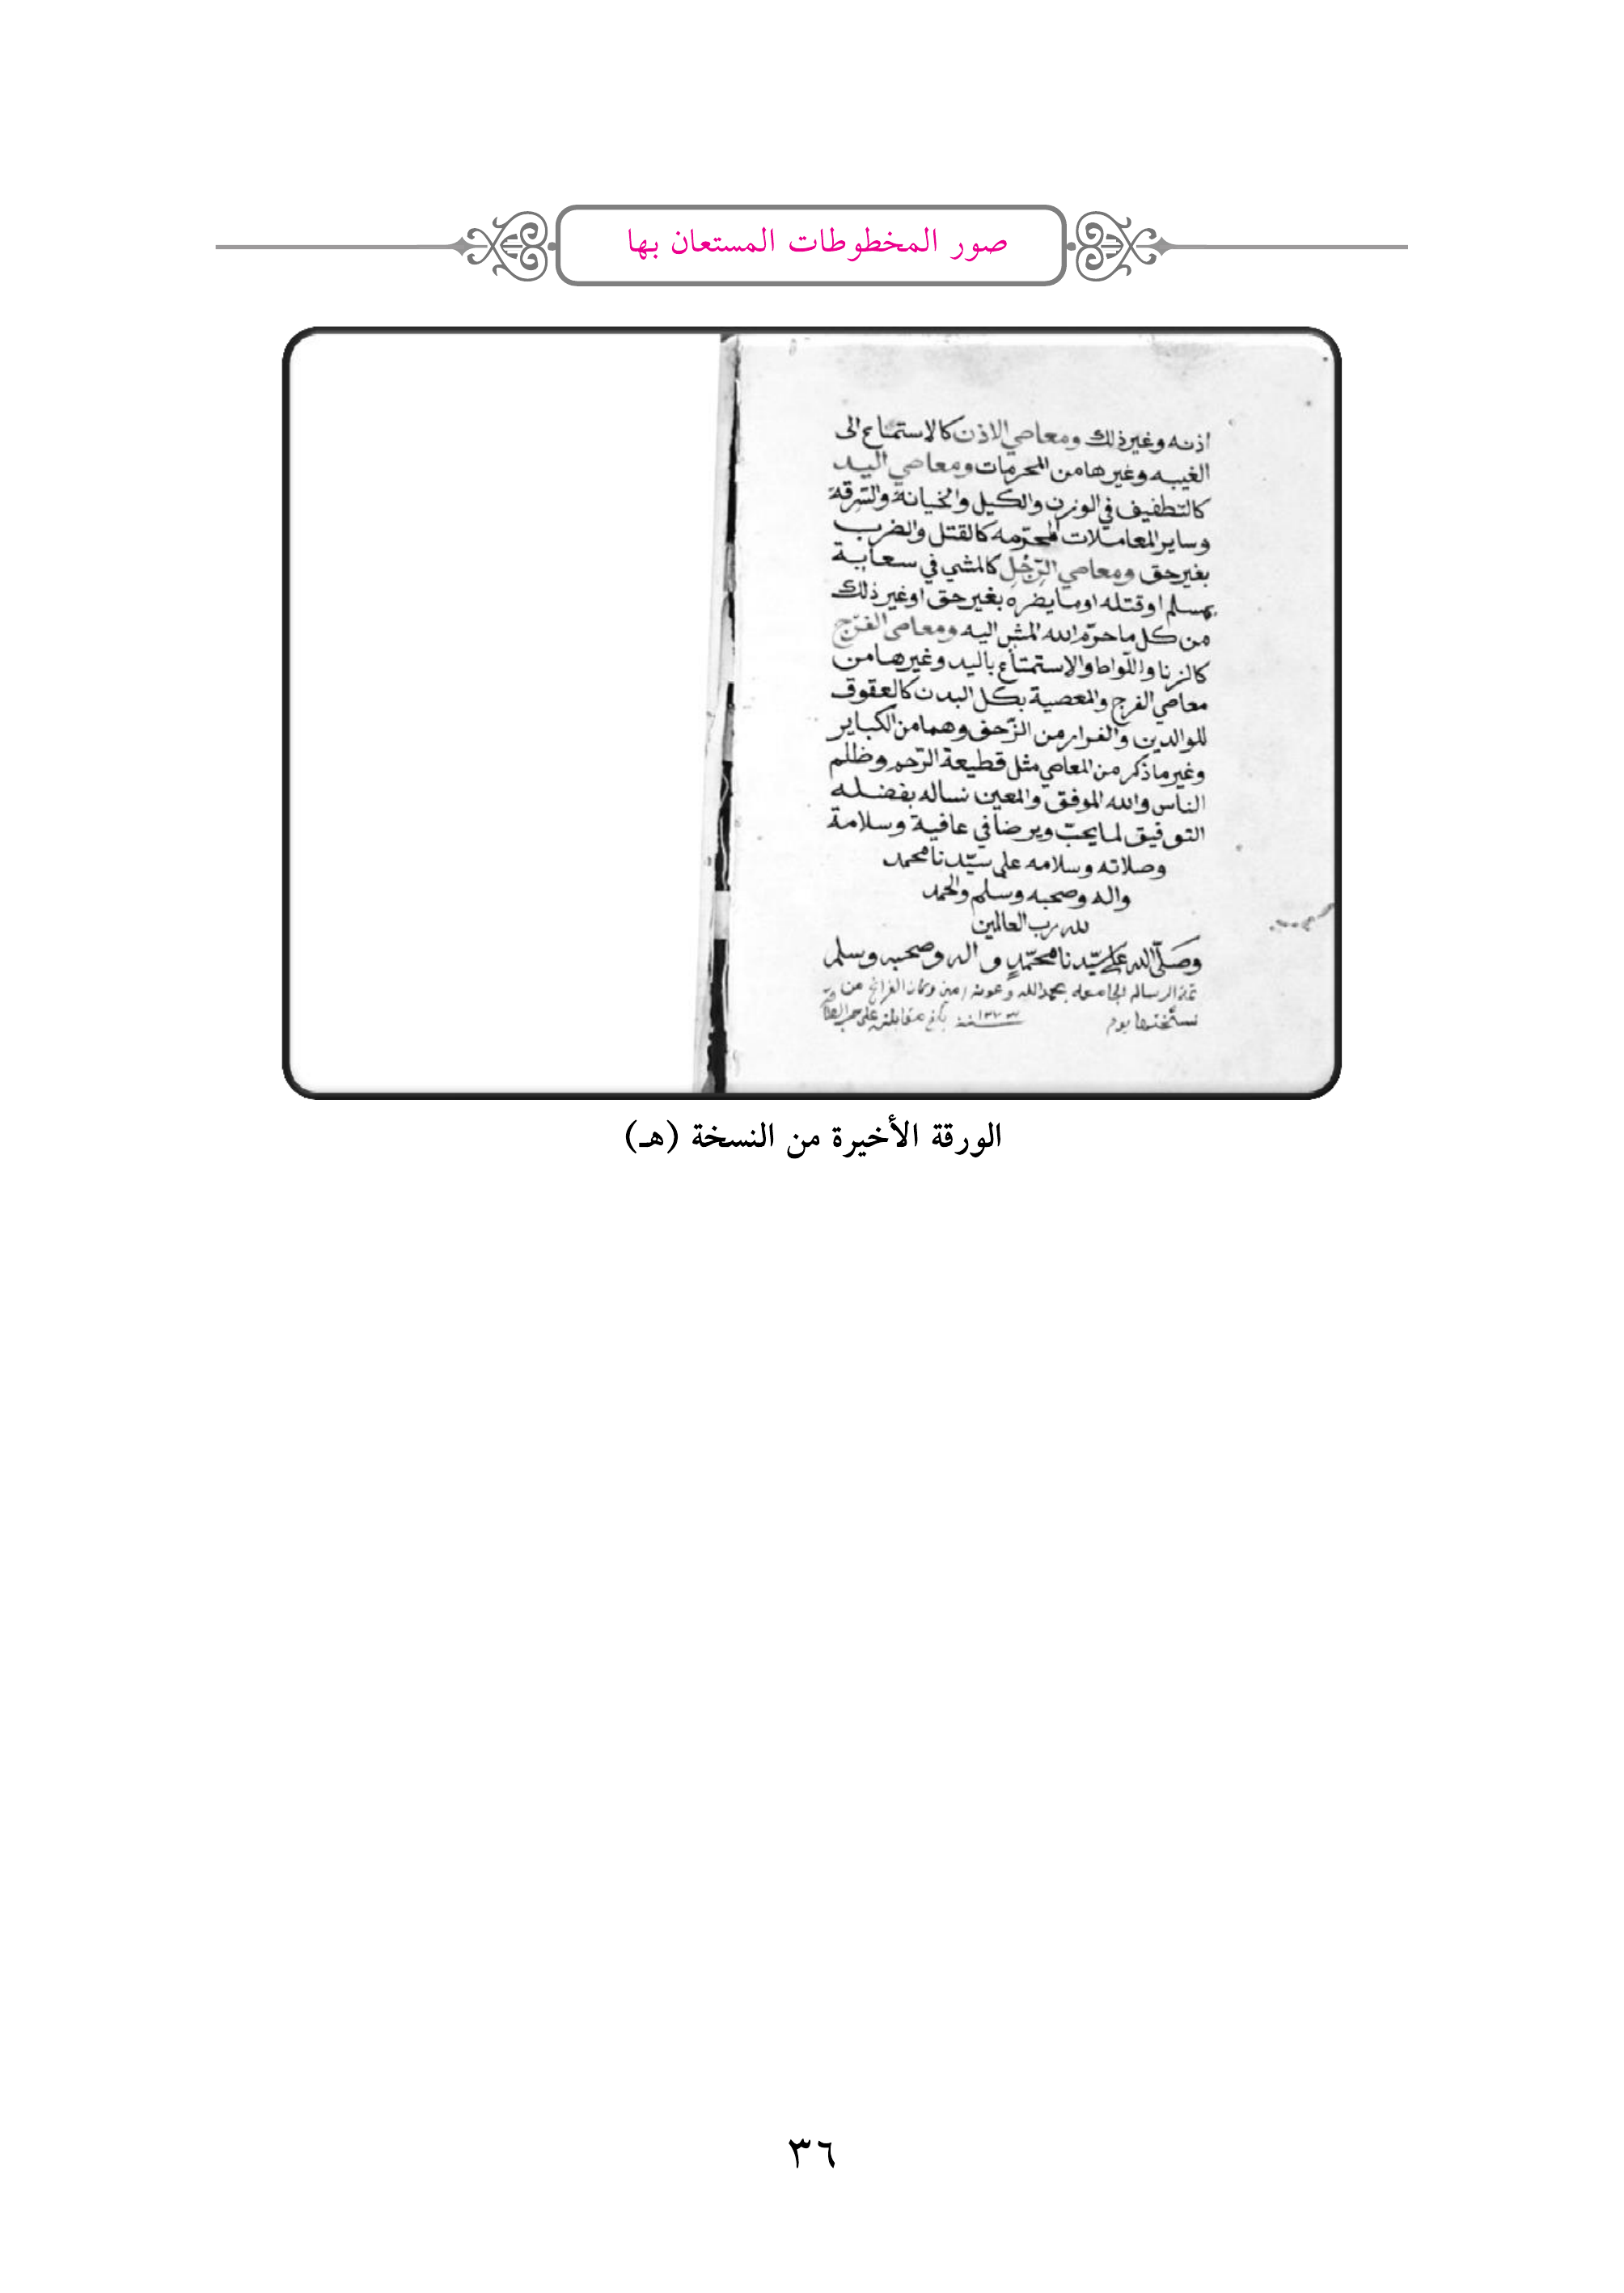 صور المخطوطات المستعان بها
اذنه وغير ذلك ومعاصي الاذن كالاستماع الى
الغيبه وغيرها من المحرمات ومعاصي اليد
كالتطفيف في الوزن والكيل والخيانة والسّرقة
وساير المعاملات المحرّمه كالقتل والضرب
بغير حق ومعاصي الرّجل كالمشي في سعاية
بمسلم او قتله او ما يضره بغير حق او غير ذلك
من كل ما حرّم الله المشي اليه ومعاصي الفرج
كالزنا واللّواط والاستمتاع باليد وغيرها من
معاصي الفرج والمعصية بكل البدن كالعقوق
للوالدين والفرار من الزّحف وهما من الكباير
وغير ما ذكر من المعاصي مثل قطيعة الرّحم وظلم
الناس والله الموفق والمعين نساله بفضله
التوفيق لما يحبّ ويرضا في عافية وسلامة
وصلاته وسلامه على سيّدنا محمد
واله وصحبه وسلم والحمد
لله رب العالمين
وصلّى الله على سيّدنا محمّد واله وصحبه وسلم
تمة الرساله الجامعه بحمد الله وعونه امين وكان الفراغ من
نسختها يوم سنة بلغ مقابلته على
الورقة الأخيرة من النسخة (هـ)
٣٦